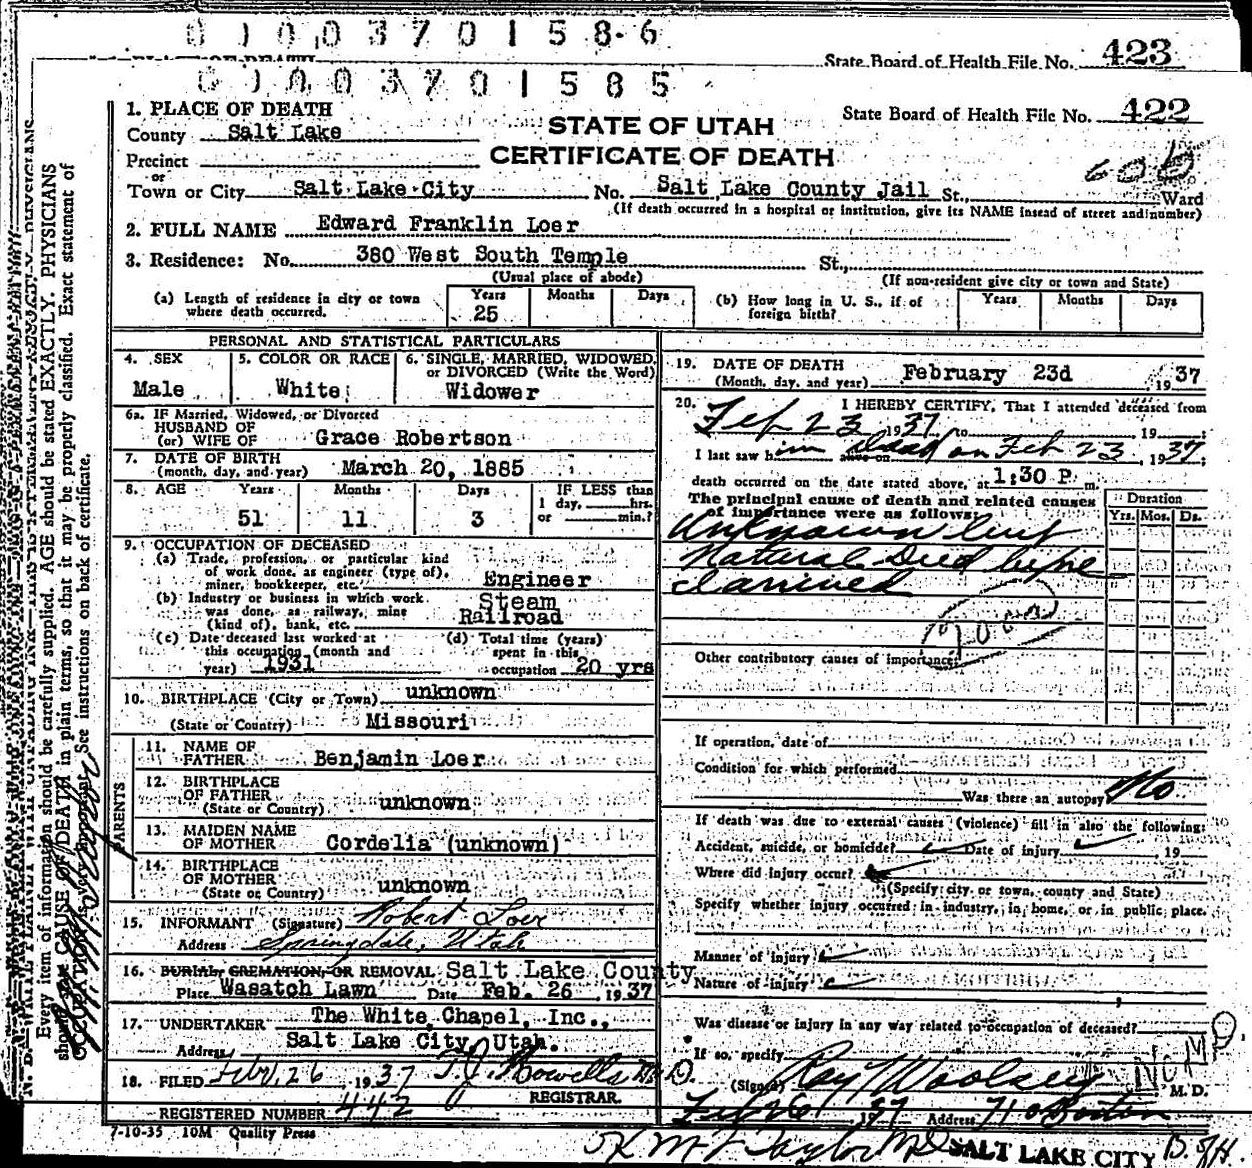 0 1 0 0 3 7 0 1 5 8 6
State Board of Health File No. 423
0 1 0 0 3 7 0 1 5 8 5
1. PLACE OF DEATH
State Board of Health File No. 422
County Salt Lake
STATE OF UTAH
CERTIFICATE OF DEATH
Precinct
or
Town or City Salt Lake City No. Salt Lake County Jail St., Ward
(If death occurred in a hospital or institution, give its NAME instead of street and number)
2. FULL NAME Edward Franklin Loer
3. Residence: No. 380 West South Temple St.,
(Usual place of abode) (If non-resident give city or town and State)
(a) Length of residence in city or town where death occurred. Years 25 Months Days
(b) How long in U. S., if of foreign birth? Years Months Days
PERSONAL AND STATISTICAL PARTICULARS
4. SEX Male
5. COLOR OR RACE White
6. SINGLE, MARRIED, WIDOWED, or DIVORCED (Write the Word) Widower
6a. IF Married, Widowed, or Divorced
HUSBAND OF
(or) WIFE OF Grace Robertson
7. DATE OF BIRTH
(month, day, and year) March 20, 1885
8. AGE Years 51 Months 11 Days 3
IF LESS than
1 day, hrs.
or min.?
9. OCCUPATION OF DECEASED
(a) Trade, profession, or particular kind
of work done, as engineer (type of),
miner, bookkeeper, etc. Engineer
(b) Industry or business in which work
was done, as railway, mine
(kind of), bank, etc. Steam Railroad
(c) Date deceased last worked at
this occupation (month and
year) 1931
(d) Total time (years)
spent in this
occupation 20 yrs
10. BIRTHPLACE (City or Town) unknown
(State or Country) Missouri
PARENTS
11. NAME OF FATHER Benjamin Loer
12. BIRTHPLACE OF FATHER
(State or Country) unknown
13. MAIDEN NAME OF MOTHER Cordelia (unknown)
14. BIRTHPLACE OF MOTHER
(State or Country) unknown
15. INFORMANT (Signature) Robert Loer
Address Springdale, Utah
16. BURIAL, CREMATION, OR REMOVAL Salt Lake County
Place Wasatch Lawn Date Feb. 26, 1937
17. UNDERTAKER The White Chapel, Inc.,
Address Salt Lake City, Utah.
18. FILED Feb. 26, 1937 T. J. Howells M.D.
REGISTRAR.
REGISTERED NUMBER 442
7-10-35 10M Quality Press
19. DATE OF DEATH
(Month, day, and year) February 23d 1937
20. I HEREBY CERTIFY, That I attended deceased from
Feb 23 1937 to 19
I last saw him alive on dead on Feb 23, 1937
death occurred on the date stated above, at 1:30 P. m.
The principal cause of death and related causes
of importance were as follows:
Duration
Yrs. Mos. Ds.
Unknown but
Natural Died before
Other contributory causes of importance:
If operation, date of
Condition for which performed
Was there an autopsy No
If death was due to external causes (violence) fill in also the following:
Accident, suicide, or homicide? Date of injury 19
Where did injury occur?
(Specify city or town, county and State)
Specify whether injury occurred in industry, in home, or in public place.
Manner of injury
Nature of injury
Was disease or injury in any way related to occupation of deceased?
If so, specify
(Signed) Ray Woolsey M. D.
No MD
Feb 26 1937 Address 710 Boston
OK M F Taylor MD SALT LAKE CITY B. of H.
Every item of information should be carefully supplied. AGE should be stated EXACTLY. PHYSICIANS
should state CAUSE OF DEATH in plain terms, so that it may be properly classified. Exact statement of
OCCUPATION is very important. See instructions on back of certificate.